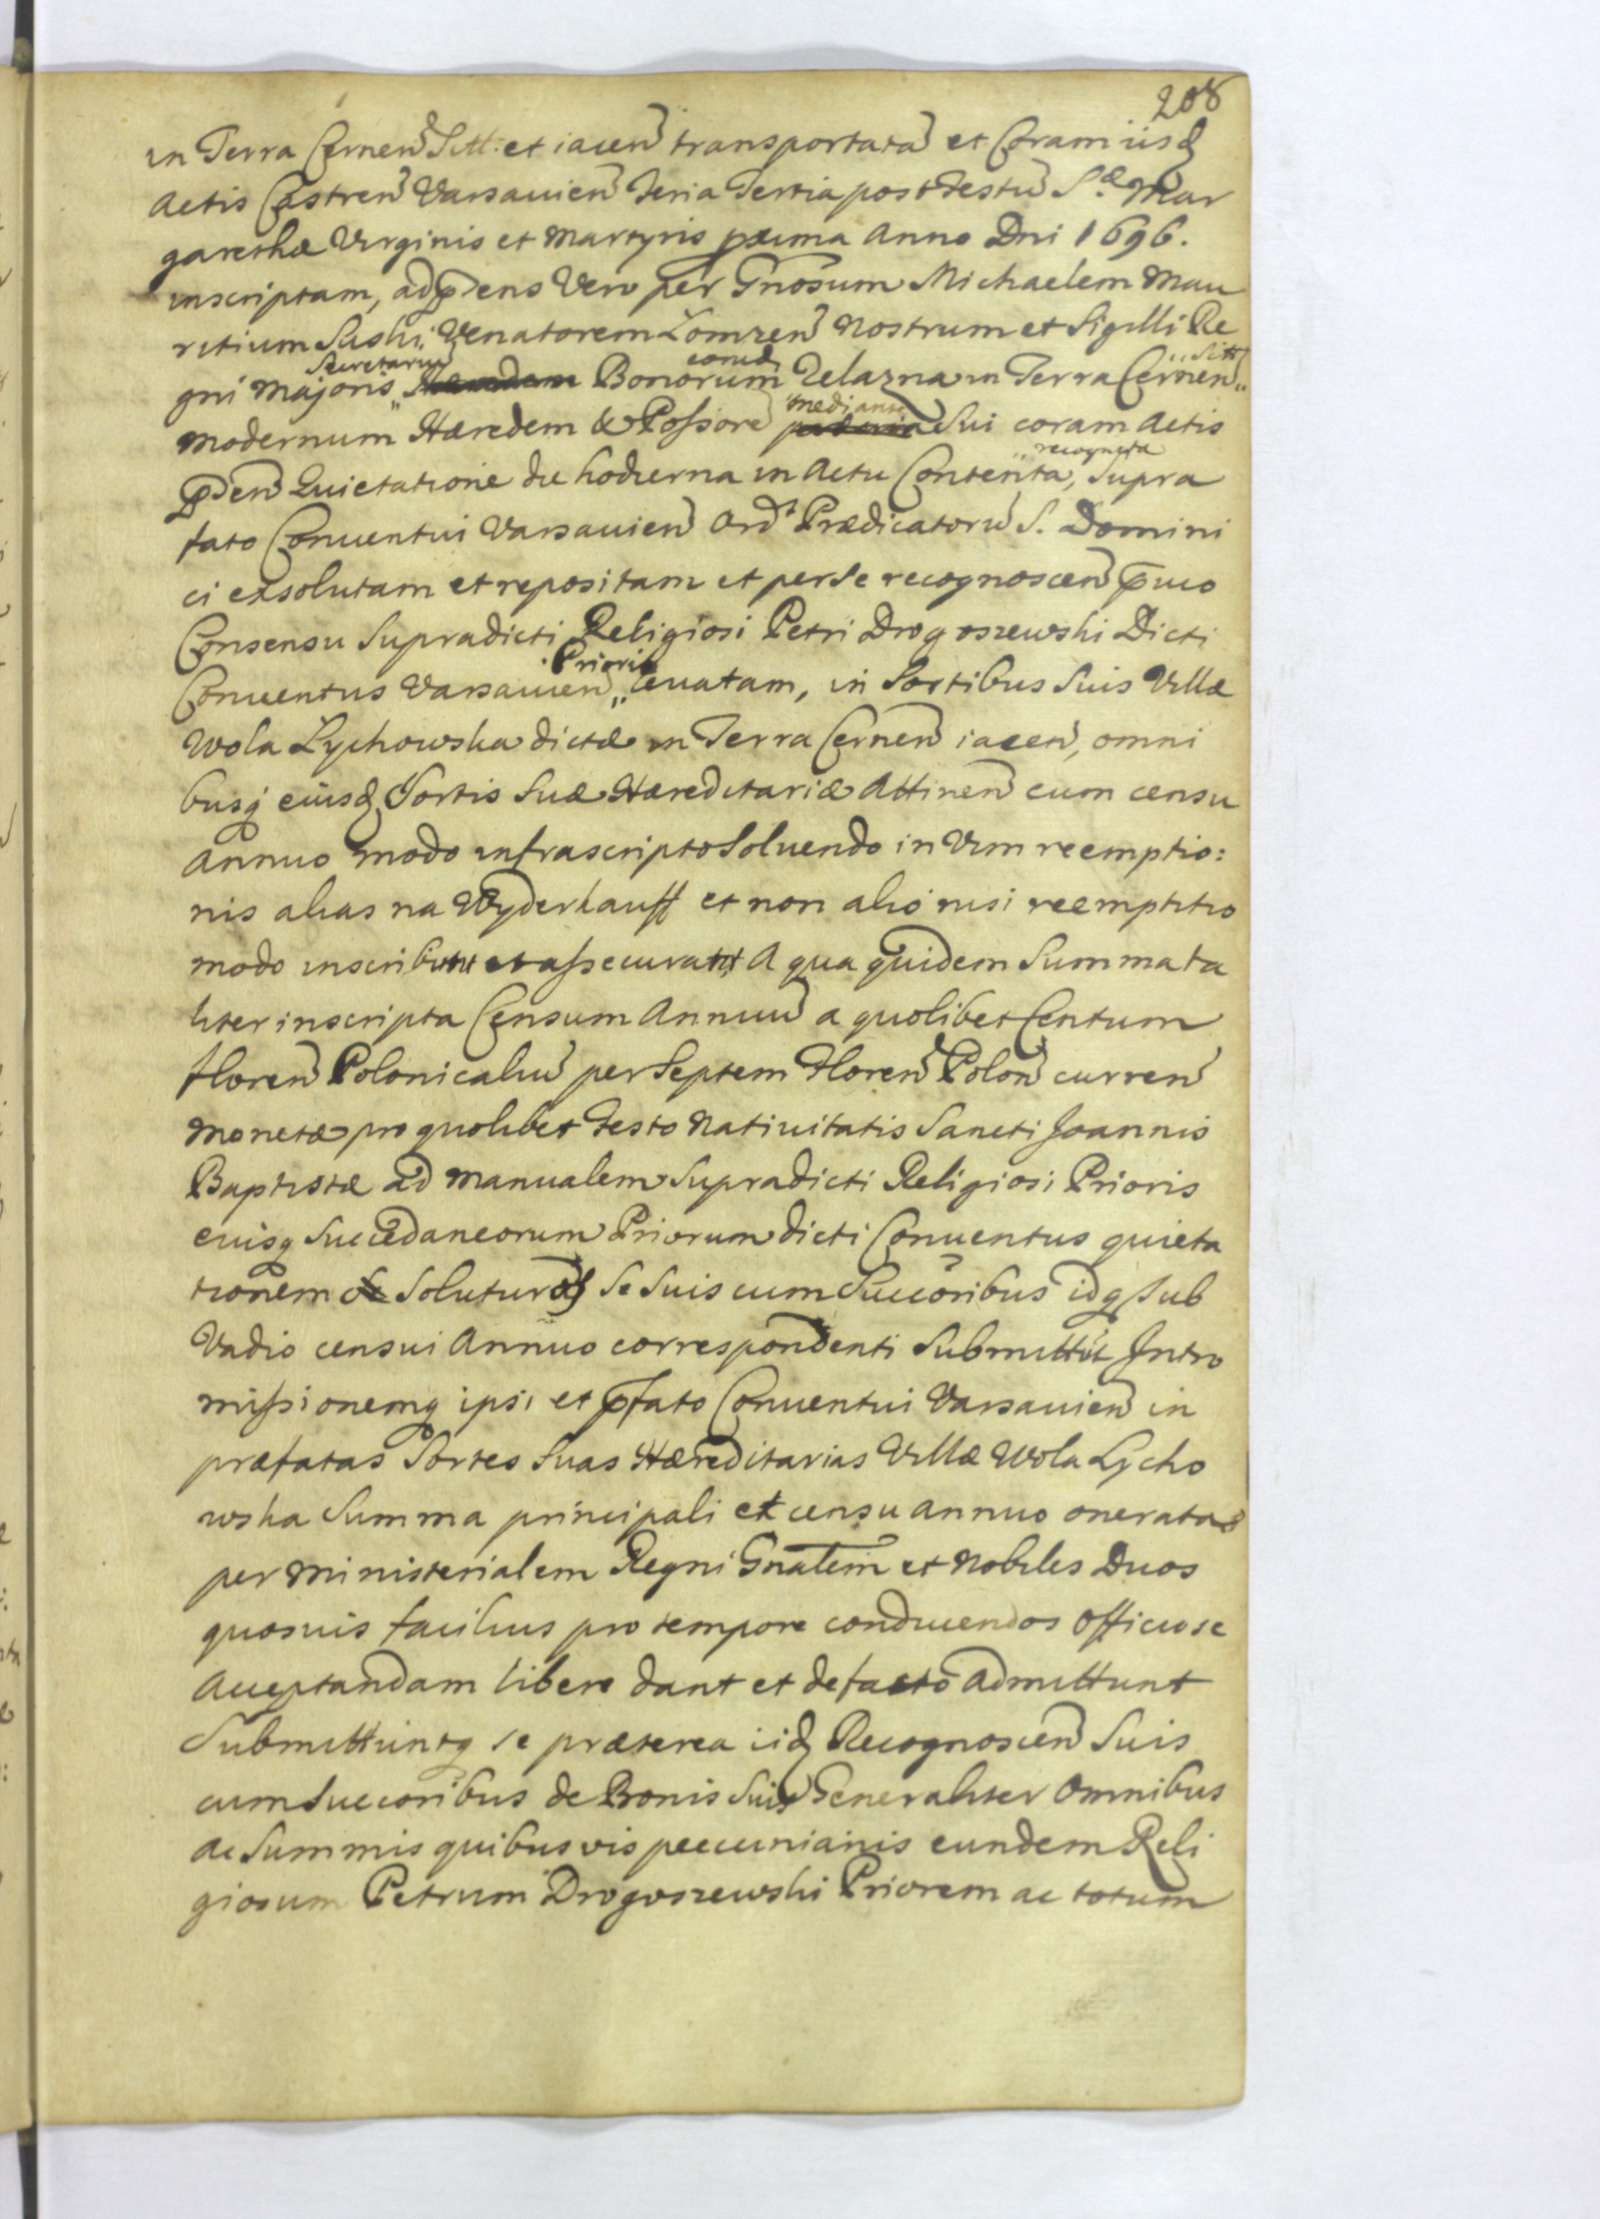 208
in Terra Cernen Sitt: et iacen transportata et Coram iisd
Actis Castren Varsauien Feria Tertia post Festu S.æ Mar
garethæ Virginis et Martyris pxima Anno Dni 1696.
inscriptam, ad pdens Vero per Gnosum Michaelem Mau
ritium Saski Venatorem Lomzen Nostrum et Sigilli Re
gni Majoris Secretariu Bonorum eorund Zelazna in Terra Cernen Sitt
modernum Hæredem & Possore mediante Sui coram Actis
pden Quietatione die hodierna in Actu Contenta, recognita Supra
fato Conuentui Varsauien Ord. Prædicatoru S. Domini
ci exsolutam et repositam et per Se recognoscen pvio
Consensu Supradicti Religiosi Petri Drogoszewski Dicti
Conuentus Varsauien Prioris leuatam, in Sortibus Suis Villæ
Wola Lychowska dictæ in Terra Cernen iacen, omni
busq eiusd Sortis Suæ Hæreditariæ Attinen cum censu
Annuo modo infrascripto Soluendo in Vim reemptio:
nis alias na Wyderkauff et non alio nisi reemptitio
modo inscribunt et assecurant A qua quidem Summa ta
liter inscripta Censum Annuu a quolibet Centum
floren Polonicaliu per Septem Floren Polon curren
Monetæ pro quolibet Festo Natiuitatis Sancti Joannis
Baptistæ ad Manualem Supradicti Religiosi Prioris
eiusq Succedaneorum Priorum dicti Conuentus quieta
tionem Soluturos Se Suis cum Succoribus idq sub
Vadio censui Annuo correspondenti Submittut Intro
missionemq ipsi et pfato Conuentui Varsauien in
præfatas Sortes Suas Hæreditarias Villæ Wola Lycho
wska Summa principali et censu annuo oneratas
per Ministerialem Regni Gnalem et Nobiles Duos
quosuis facilius pro tempore conducendos Officiose
Acceptandam libere dant et de facto Admittunt
Submittuntq se præterea iid Recognoscen Suis
cum Succoribus de Bonis Suis Generaliter Omnibus
ac Summis quibusvis peccuniariis eundem Reli
giosum Petrum Drogoszewski Priorem ac totum